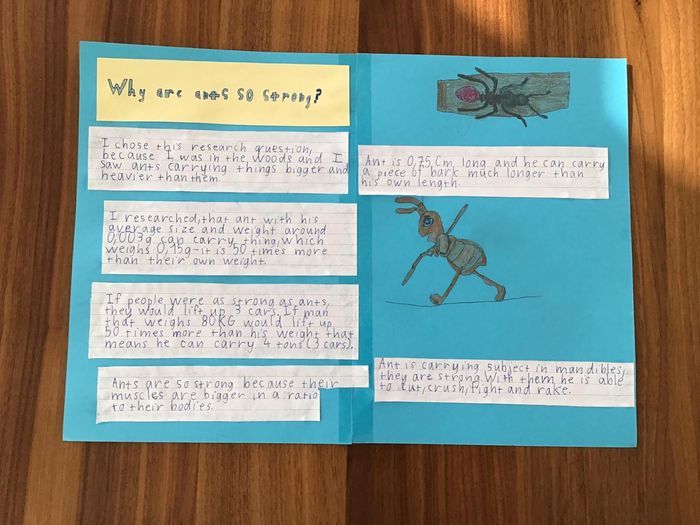 Why are ants so strong?
I chose this research question,
because I was in the woods and I
saw ants carrying things bigger and
heavier than them.
I researched, that ant with his
average size and weight around
0,003g can carry thing, which
weighs 0,15g-it is 50 times more
than their own weight.
If people were as strong as ants,
they would lift up 3 cars. If man
that weighs 80KG would lift up
50 times more than his weight that
means he can carry 4 tons (3 cars).
Ants are so strong because their
muscles are bigger in a ratio
to their bodies.
Ant is 0,75 Cm long and he can carry
a piece of bark much longer than
his own length.
Ant is carrying subject in mandibles,
they are strong. With them he is able
to cut, crush, fight and rake.